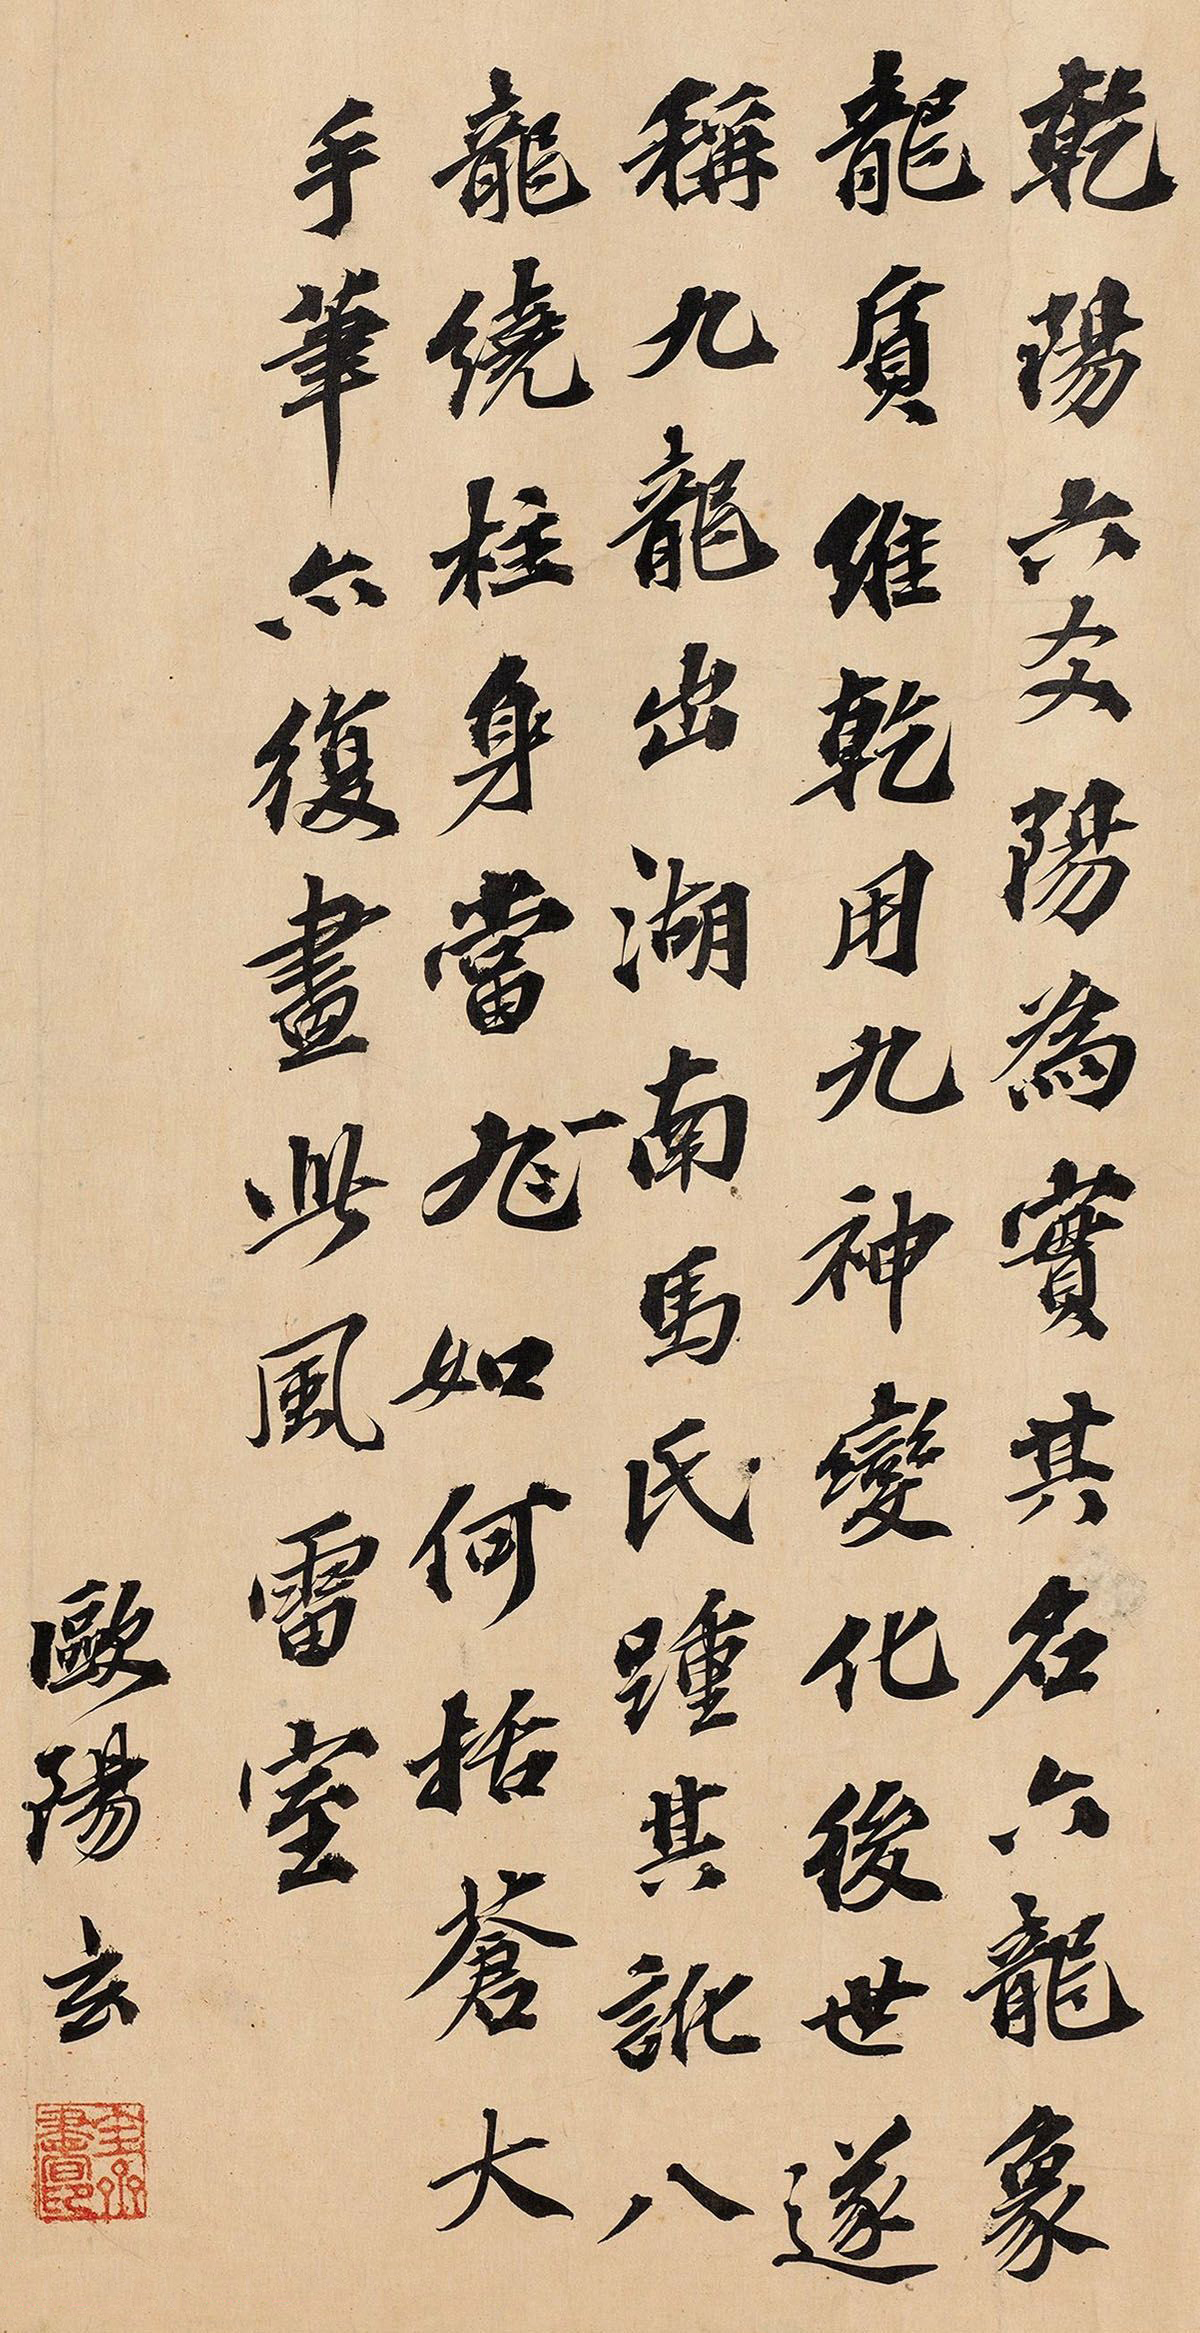 乾陽六爻陽為實其名六龍象
龍質維乾用九神變化後世遂
稱九龍出湖南馬氏踵其訛八
龍繞柱身當九一如何括蒼大
手筆亦復畫此風雷室
歐陽玄